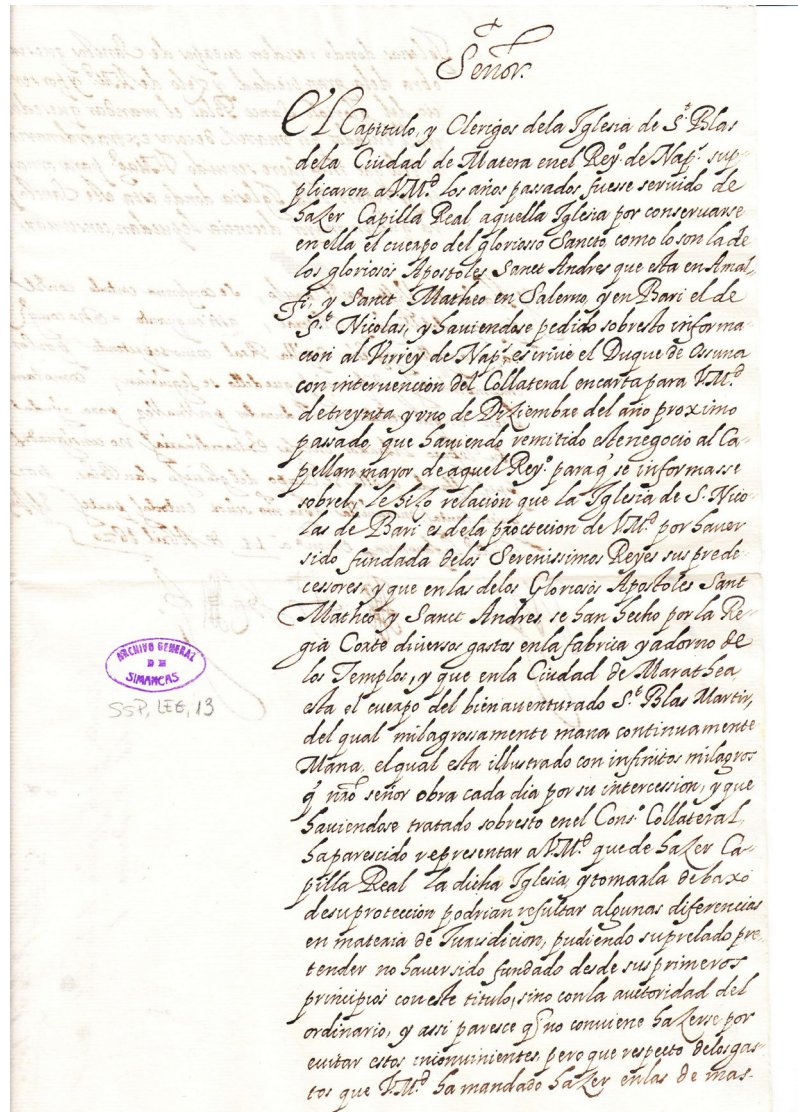 Señor.
El Capitulo, y Clerigos dela Iglesia de S.t Blas
dela Ciudad de Matera enel Rey.o de Nap.s sup
plicaron a V.M.d los años passados, fuesse servido de
hazer Capilla Real aquella Iglesia por conservarse
en ella el cuerpo del gloriosso Sancto como lo son la de
los gloriosos Apostoles Sanct Andres que esta en Amal,
fi, y Sanct Matheo en Salerno, y en Bari el de
S.t Nicolas, y haviendose pedido sobresto informa
cion al Virrey de Nap.s escrive el Duque de Ossuna
con intervencion del Collateral en carta para V.M.d
de treynta y vno de Diziembre del año proximo
passado, que haviendo remitido este negocio al Ca-
pellan mayor de aquel Rey.o para q̃ se informasse
sobrel, le hizo relación que la Iglesia de S. Nico-
las de Bari es dela proctecion de V.M.d por haver
sido fundada delos Serenissimos Reyes sus prede-
cessores, y que en las delos Gloriosos Apostoles Sant
Matheo y Sanct Andres, se han hecho por la Re-
gia Corte diversos gastos en la fabrica y adorno de
los Templos, y que enla Ciudad de Marathea
esta el cuerpo del bienaventurado S.t Blas Martir,
del qual milagrossamente mana continuamente
Mana, elqual esta illustrado con infinitos milagros
q̃ nr̃o señor obra cada dia por su intercession, y que
haviendose tratado sobresto enel Cons.o Collateral,
ha parescido representar a V.M.d que de hazer Ca-
pilla Real la dicha Iglesia, y tomarla debaxo
de su proteccion podrian resultar algunas diferencias
en materia de Iurisdicion, pudiendo su prelado pre-
tender no haver sido fundado desde sus primeros
principios con este titulo, sino con la auctoridad del
ordinario, y assi paresce q̃ no conviene hazerse por
evitar estos inconvinientes, pero que respecto delos gas-
tos que V.M.d ha mandado hazer en las de mas-
ARCHIVO GENERAL
DE
SIMANCAS
SSP, LEG, 13